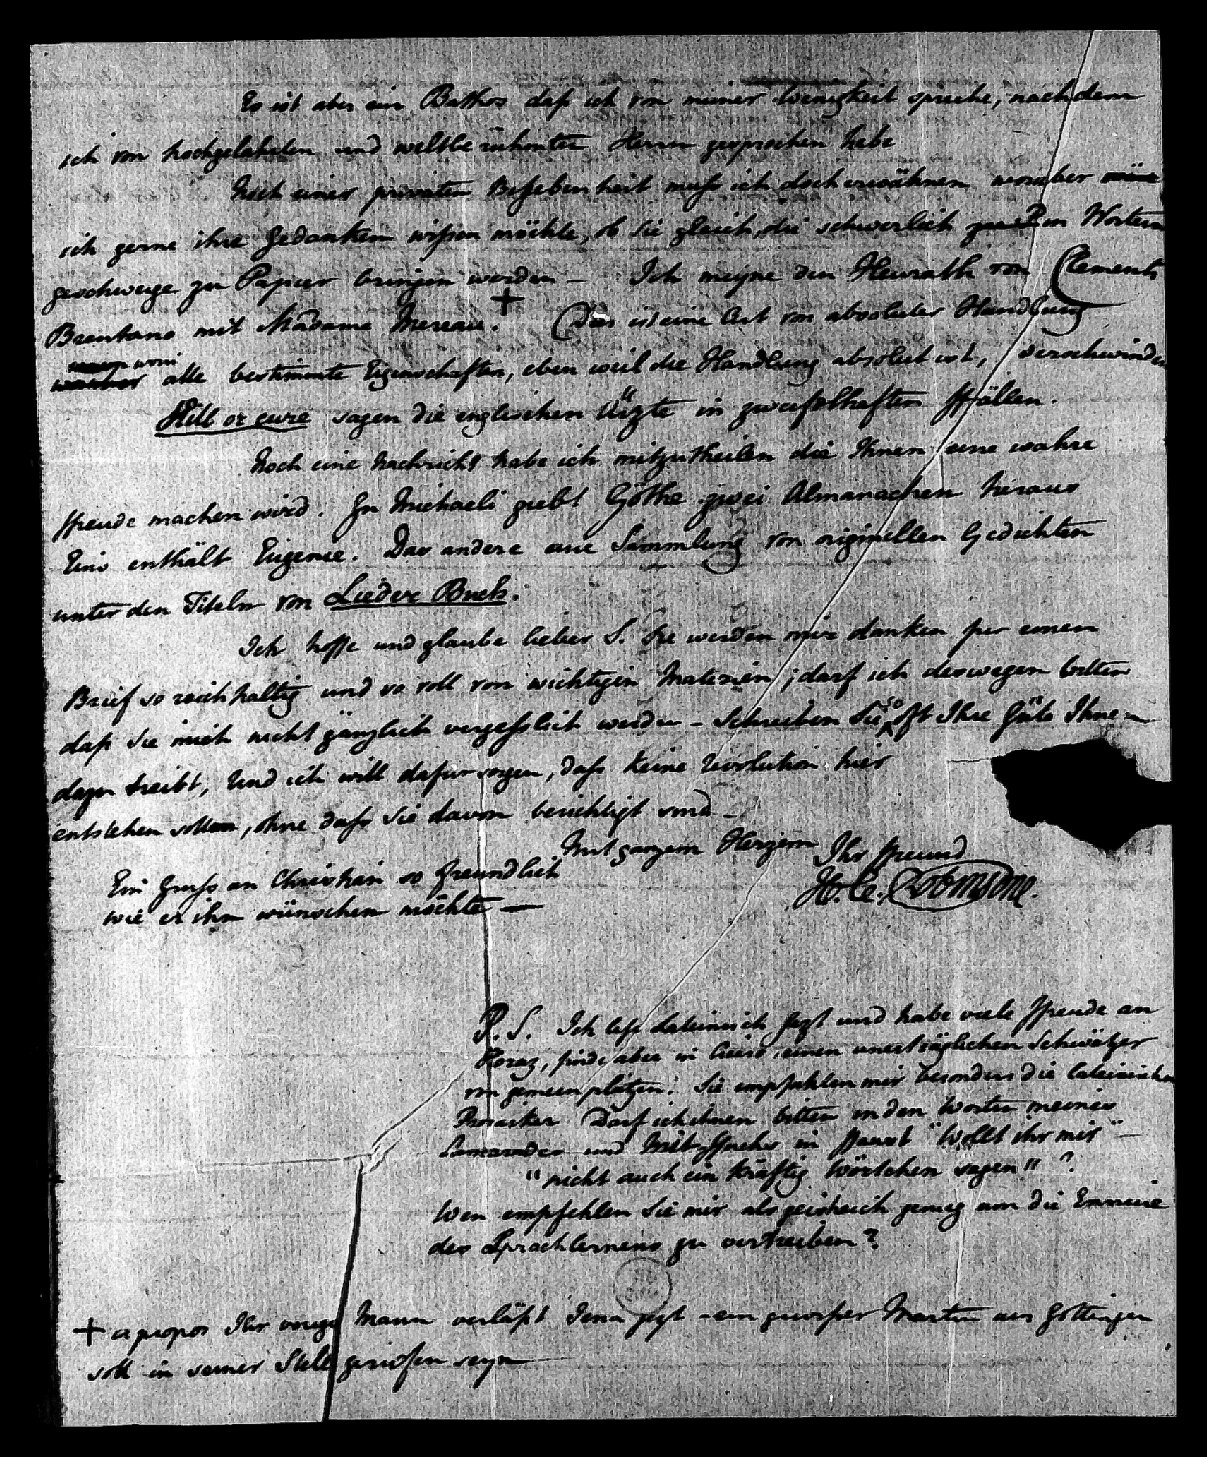 Es ist aber ein Bathos daß ich von meiner Wenigkeit spreche, nachdem
ich von hochgelahrten und weltberühmten Herrn gesprochen habe
Noch einer privaten Begebenheit muß ich doch erwähnen worüber
ich gerne ihre Gedanken wissen möchte, ob Sie gleich die schwerlich zu Worten
geschweige zu Papier bringen werden – Ich meyne den Heurath von Clements
Brentano mit Madame Mereau. + Das ist eine Art von absoluter Handlung
worin alle bestimmte Eigenschaften, eben weil die Handlung absolut ist, verschwinden
Kill or cure sagen die englischen Ärzte in zweifelhaften Fällen.
Noch eine Nachricht habe ich mitzutheilen die Ihnen eine wahre
Freude machen wird. Zu Michaeli giebt Göthe zwei Almanachen heraus
Eins enthält Eugenie. Das andere eine Sammlung von originellen Gedichten
unter den Titeln von Lieder Buch.
Ich hoffe und glaube lieber S. Sie werden mir danken für einen
Brief so reichhaltig und so voll von wichtigen Materien; darf ich deswegen bitten
daß Sie mich nicht gänzlich vergeßlich werden – Schreiben Sie so oft Ihre Güte Ihnen
dazu treibt, Und ich will dafur sorgen, daß keine revolution hier
entstehen sollen, ohne daß Sie davon berichtigt sind –
Mit ganzem Herzen Ihr Freund
H. C. Robinson.
Ein Gruß an Christian so freundlich
wie er ihn wünschen möchte —
P. S. Ich lese lateinisch jezt und habe viele Freude an
Horaz, finde aber in Cicero einen unerträglichen Schwätzer
von gemeinplätzen. Sie empfahlen mir besonders die lateinischen
Prosaiker Darf ich ihnen bitten in den Worten meines
und in Faust "Wollt ihr mir –
"nicht auch ein kräftig Wörtchen sagen" ?
Wen empfehlen Sie mir als geistreich genug um die Ennuie
des Sprachlernens zu vertreiben?
+ a propos Ihr voriger Mann verläßt Jena jezt – ein gewisser Martin aus Gottingen
soll in seiner Stelle gerufen seyn —